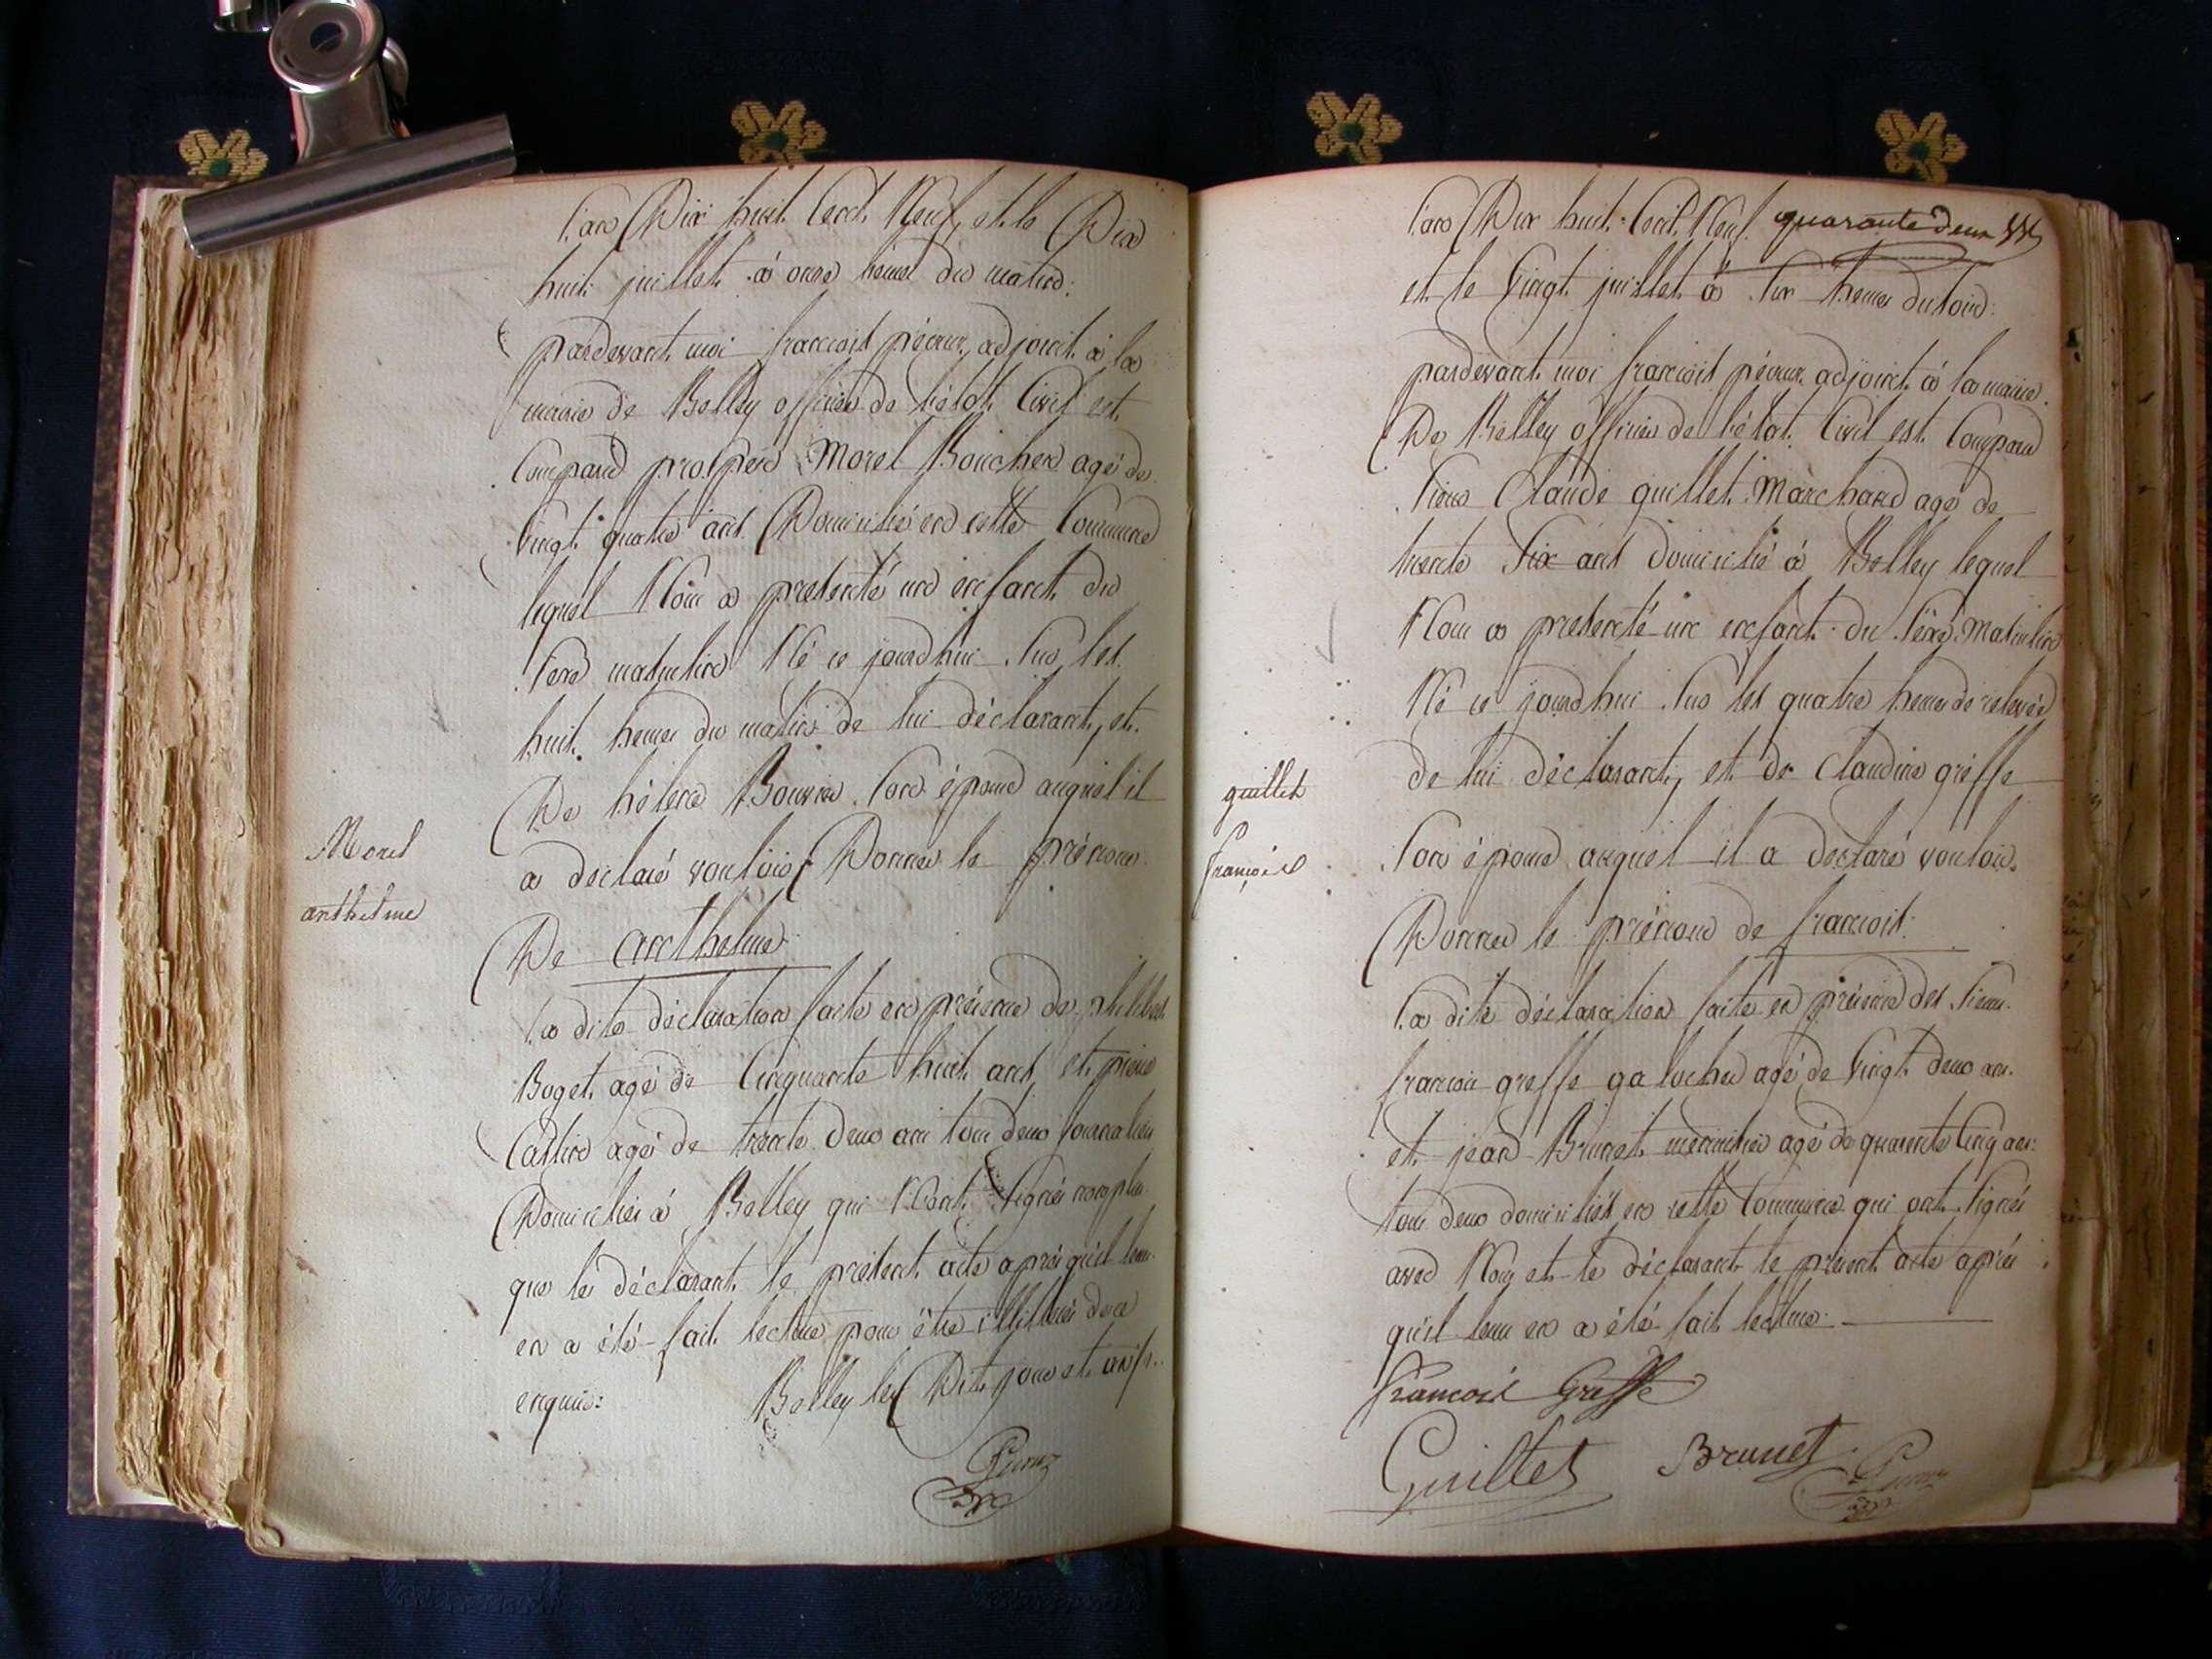 L'an Dix huit Cent Neuf, et le Dix
huit juillet à onze heures du matin:
pardevant moi francois péroux adjoint à la
mairie de Belley officier de l'état Civil est
Comparu prosper Morel Boucher agé de
Vingt quatre ans Domicilié en cette Commune
lequel Nous a presenté un enfant du
sexe masculin Né ce jourdhui sur les
huit heures du matin de lui déclarant, et
De héléne Bouvier son épouse auquel il
a declaré vouloir Donner le prénom
De anthelme
Morel
anthelme
La dite déclaration faite en présence de philibert
Boget agé de Cinquante huit ans et pierre
Castin agé de trente deux ans tous deux Journaliers
Domiciliés à Belley qui N'ont signés nonplus
que le déclarant le présent acte après qu'il leur
en a été fait lecture pour être illitérés de ce
enquis: Belley les Dit jour et an
L'an Dix huit Cent Neuf quarante deux
et le Vingt juillet à six heures du soir:
pardevant moi francois péroux adjoint à la mairie
De Belley officier de l'état Civil est Comparu
sieur Claude guillet Marchand agé de
trente six ans domicilié à Belley lequel
Nous a presenté un enfant du sexe Masculin
Né ce jourdhui sur les quatre heures de relevée
de lui déclarant, et de Claudine greffe
son épouse auquel il a declaré vouloir
Donner le prénom de francois
guillet
françois
La dite déclaration faite en présence des sieurs
francois greffe galocher agé de Vingt deux ans
et jean Brunet menuisier agé de quarante Cinq ans
tous deux domiciliés en cette Commune qui ont signés
avec Nous et le déclarant le présent acte après
qu'il leur en a été fait lecture:
francois Greffe
Guillet Brunet